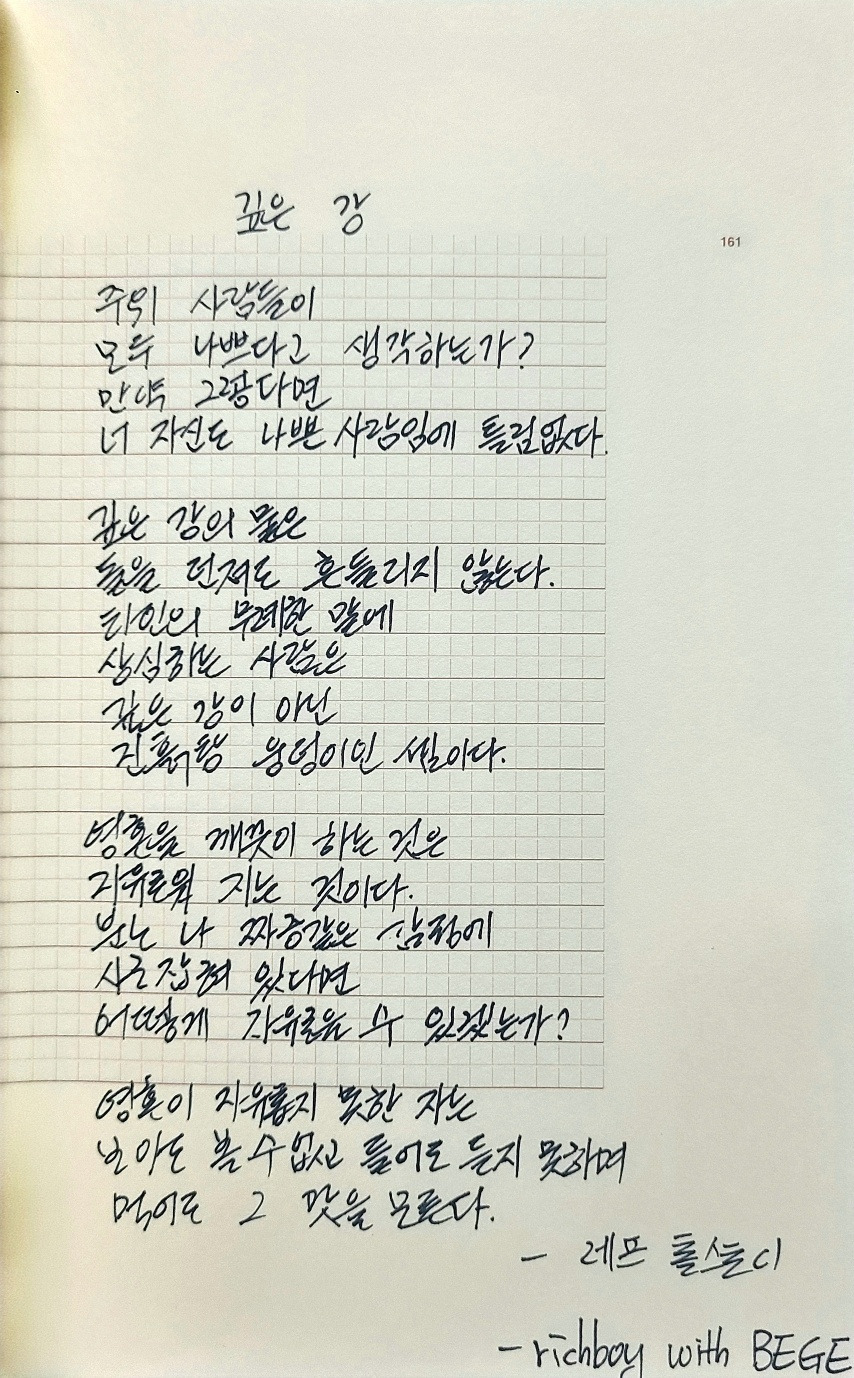 깊은 강
161
주위 사람들이
모두 나쁘다고 생각하는가?
만약 그렇다면
너 자신도 나쁜 사람임에 틀림없다.
깊은 강의 물은
돌을 던져도 흔들리지 않는다.
타인의 무례한 말에
상심하는 사람은
깊은 강이 아닌
진흙탕 웅덩이인 셈이다.
영혼을 깨끗이 하는 것은
자유로워 지는 것이다.
분노나 짜증같은 감정에
사로잡혀 있다면
어떻게 자유로울 수 있겠는가?
영혼이 자유롭지 못한 자는
보아도 볼 수 없고 들어도 듣지 못하며
먹어도 그 맛을 모른다.
- 레프 톨스토이
- richboy with BEGE